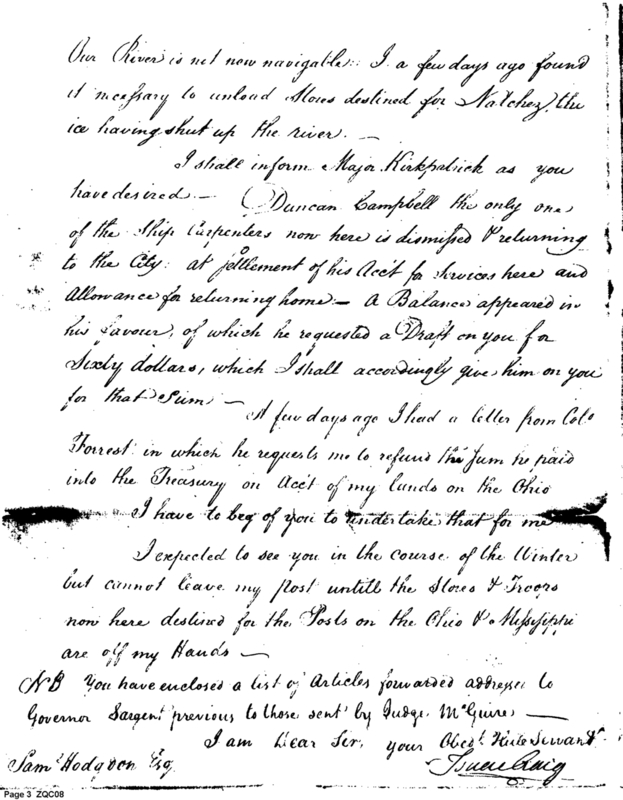 Our River is not now navigable: I a few days ago found
it necessary to unload Stores destined for Natchez, the
ice having shut up the river. —
I shall inform Major Kirkpatrick as you
have desired — Duncan Campbell the only one
of the Ship Carpenters now here is dismissed & returning
to the City: at settlement of his Acct for Services here and
Allowance for returning home — A Balance appeared in
his favour, of which he requested a Draft on you for
Sixty dollars, which I shall accordingly give him on you
for that Sum —
A few days ago I had a letter from Colo
Forrest in which he requests me to refund the Sum he paid
into the Treasury on Acct of my lands on the Ohio
I have to beg of you to undertake that for me
I expected to see you in the course of the Winter
but cannot leave my post untill the Stores & Troops
now here destined for the Posts on the Ohio & Mississippi
are off my Hands —
NB You have enclosed a list of Articles forwarded addressed to
Governor Sargent previous to those sent by Judge McGuire —
I am Dear Sir, your Obedt Hule Servant
Saml Hodgdon Esq
Isaac Craig
Page 3 ZQC08